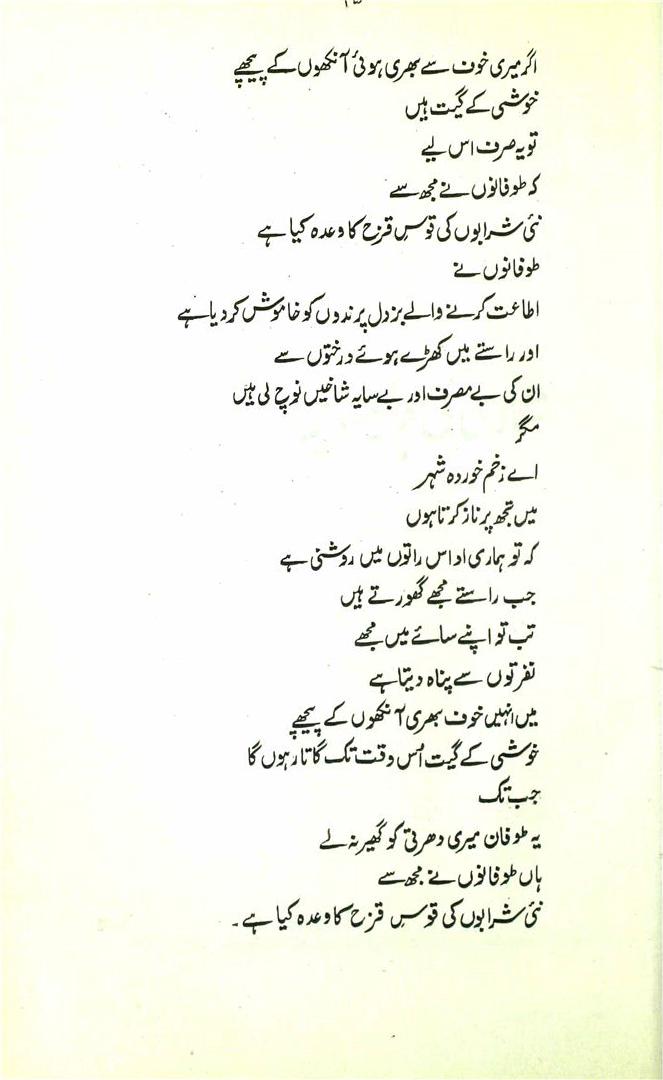 اگر میری خوف سے بھری ہوئی آنکھوں کے پیچھے
خوشی کے گیت ہیں
تو یہ صرف اس لیے
کہ طوفانوں نے مجھ سے
نئی شرابوں کی قوسِ قزح کا وعدہ کیا ہے
طوفانوں نے
اطاعت کرنے والے بزدل پرندوں کو خاموش کر دیا ہے
اور راستے میں کھڑے ہوئے درختوں سے
ان کی بے مصرف اور بے سایہ شاخیں نوچ لی ہیں
مگر
اے زخم خوردہ شہر
میں تجھ پر ناز کرتا ہوں
کہ تو ہماری اداس راتوں میں روشنی ہے
جب راستے مجھے گھورتے ہیں
تب تو اپنے سائے میں مجھے
نفرتوں سے پناہ دیتا ہے
میں انہیں خوف بھری آنکھوں کے پیچھے
خوشی کے گیت اُس وقت تک گاتا رہوں گا
جب تک
یہ طوفان میری دھرتی کو گھیر نہ لے
ہاں طوفانوں نے مجھ سے
نئی شرابوں کی قوسِ قزح کا وعدہ کیا ہے۔